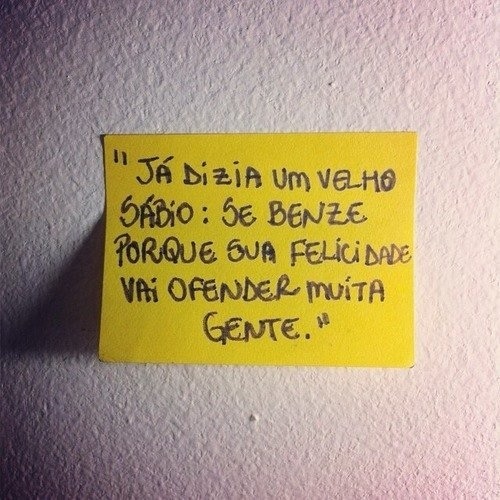 "JÁ DIZIA UM VELHO
SÁBIO: SE BENZE
PORQUE SUA FELICIDADE
VAI OFENDER MUITA
GENTE."